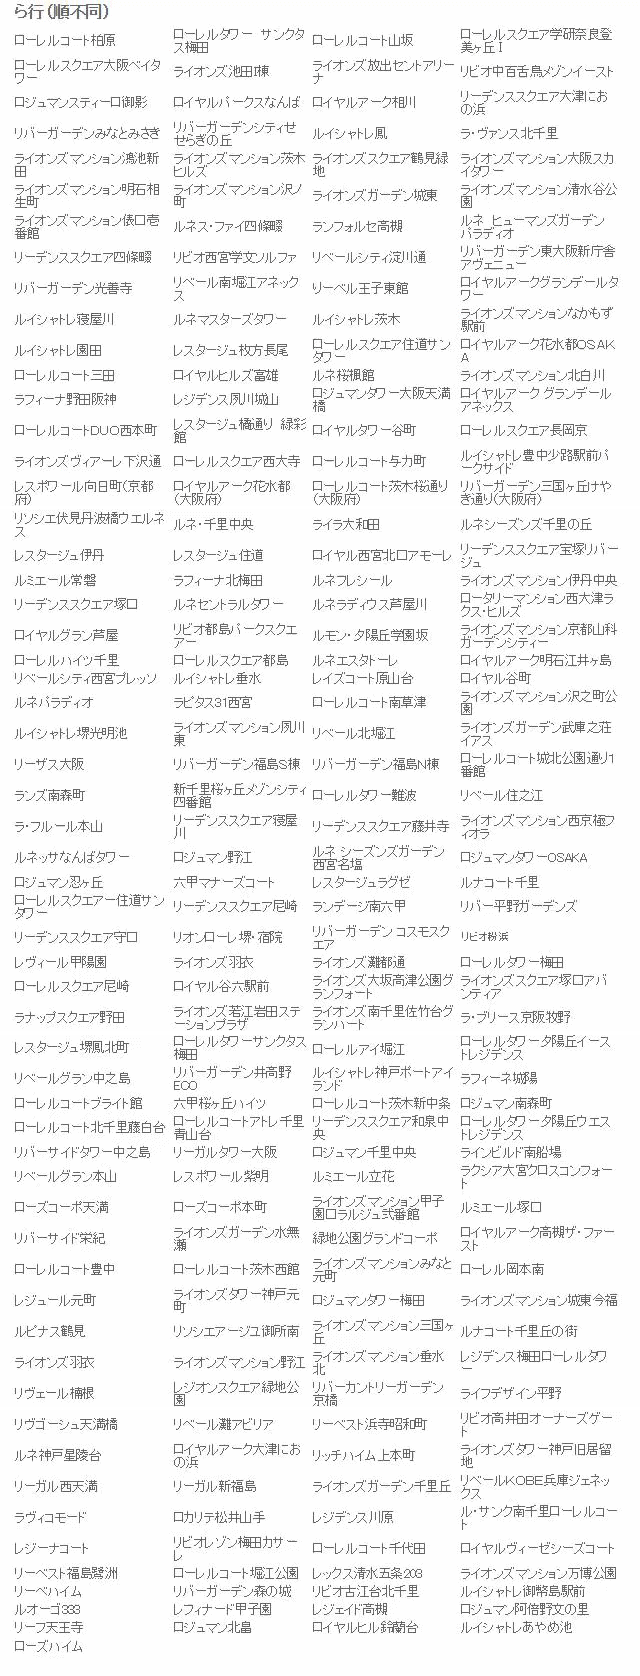 ら行（順不同）
ローレルコート柏原
ローレルタワー サンクタス梅田
ローレルコート山坂
ローレルスクエア学研奈良登美ヶ丘Ⅰ
ローレルスクエア大阪ベイタワー
ライオンズ池田Ⅰ棟
ライオンズ放出セントアリーナ
リビオ中百舌鳥メゾンイースト
ロジュマンスティーロ御影
ロイヤルパークスなんば
ロイヤルアーク相川
リーデンススクエア大津におの浜
リバーガーデンみなとみさき
リバーガーデンシティせせらぎの丘
ルイシャトレ鳳
ラ・ヴァンス北千里
ライオンズマンション鴻池新田
ライオンズマンション茨木ヒルズ
ライオンズスクエア鶴見緑地
ライオンズマンション大阪スカイタワー
ライオンズマンション明石相生町
ライオンズマンション沢ノ町
ライオンズガーデン城東
ライオンズマンション清水谷公園
ライオンズマンション俵口壱番館
ルネス・ファイ四條畷
ランフォルセ高槻
ルネ ヒューマンズガーデンパラディオ
リーデンススクエア四條畷
リビオ西宮学文ソルファ
リベールシティ淀川通
リバーガーデン東大阪新庁舎アヴェニュー
リバーガーデン光善寺
リベール南堀江アネックス
リーベル王子東館
ロイヤルアークグランデールタワー
ルイシャトレ寝屋川
ルネマスターズタワー
ルイシャトレ茨木
ライオンズマンションなかもず駅前
ルイシャトレ園田
レスタージュ枚方長尾
ローレルスクエア住道サンタワー
ロイヤルアーク花水都OSAKA
ローレルコート三田
ロイヤルヒルズ富雄
ルネ桜楓館
ライオンズマンション北白川
ラフィーナ野田阪神
レジデンス夙川城山
ロジュマンタワー大阪天満橋
ロイヤルアーク グランデールアネックス
ローレルコートDUO西本町
レスタージュ橘通り 緑彩館
ロイヤルタワー谷町
ローレルスクエア長岡京
ライオンズヴィアーレ下沢通
ローレルスクエア西大寺
ローレルコート与力町
ルイシャトレ豊中少路駅前パークサイド
レスポワール向日町(京都府)
ロイヤルアーク花水都(大阪府)
ローレルコート茨木桜通り(大阪府)
リバーガーデン三国ヶ丘けやき通り(大阪府)
リンシエ伏見丹波橋ウエルネス
ルネ・千里中央
ライラ大和田
ルネシーズンズ千里の丘
レスタージュ伊丹
レスタージュ住道
ロイヤル西宮北口アモーレ
リーデンススクエア宝塚リバージュ
ルミエール常磐
ラフィーナ北梅田
ルネフレシール
ライオンズマンション伊丹中央
リーデンススクエア塚口
ルネセントラルタワー
ルネラディウス芦屋川
ロータリーマンション西大津ラクス・ヒルズ
ロイヤルグラン芦屋
リビオ都島パークスクエアー
ルモン・夕陽丘学園坂
ライオンズマンション京都山科ガーデンシティー
ローレルハイツ千里
ローレルスクエア都島
ルネエスタトーレ
ロイヤルアーク明石江井ヶ島
リベールシティ西宮プレッソ
ルイシャトレ垂水
レイズコート原山台
ロイヤル谷町
ルネパラディオ
ラピタス31西宮
ローレルコート南草津
ライオンズマンション沢之町公園
ルイシャトレ堺光明池
ライオンズマンション夙川東
リベール北堀江
ライオンズガーデン武庫之荘イアス
リーザス大阪
リバーガーデン福島S棟
リバーガーデン福島N棟
ローレルコート城北公園通り1番館
ランズ南森町
新千里桜ヶ丘メゾンシティ四番館
ローレルタワー難波
リベール住之江
ラ・フルール本山
リーデンススクエア寝屋川
リーデンススクエア藤井寺
ライオンズマンション西京極フィオラ
ルネッサなんばタワー
ロジュマン野江
ルネ シーズンズガーデン西宮名塩
ロジュマンタワーOSAKA
ロジュマン忍ヶ丘
六甲マナーズコート
レスタージュラグゼ
ルナコート千里
ローレルスクエアー住道サンタワー
リーデンススクエア尼崎
ランデージ南六甲
リバー平野ガーデンズ
リーデンススクエア守口
リオンローレ堺・宿院
リバーガーデン コスモスクエア
リビオ粉浜
レヴィール甲陽園
ライオンズ羽衣
ライオンズ灘都通
ローレルタワー梅田
ローレルスクエア尼崎
ロイヤル谷六駅前
ライオンズ大坂高津公園グランフォート
ライオンズスクエア塚口アバンティア
ラナップスクエア野田
ライオンズ若江岩田ステーションプラザ
ライオンズ南千里佐竹台グランハート
ラ・ブリース京阪牧野
レスタージュ堺鳳北町
ローレルタワーサンクタス梅田
ローレルアイ堀江
ローレルタワー夕陽丘イーストレジデンス
リベールグラン中之島
リバーガーデン井高野ECO
ルイシャトレ神戸ポートアイランド
ラフィーネ城陽
ローレルコートブライト館
六甲桜ヶ丘ハイツ
ローレルコート茨木新中条
ロジュマン南森町
ローレルコート北千里藤白台
ローレルコートアトレ千里青山台
リーデンススクエア和泉中央
ローレルタワー夕陽丘ウエストレジデンス
リバーサイドタワー中之島
リーガルタワー大阪
ロジュマン千里中央
ラインビルド南船場
リベールグラン本山
レスポワール紫明
ルミエール立花
ラクシア大宮クロスコンフォート
ローズコーポ天満
ローズコーポ本町
ライオンズマンション甲子園口ラルジュ弐番館
ルミエール塚口
リバーサイド栄紀
ライオンズガーデン水無瀬
緑地公園グランドコーポ
ロイヤルアーク高槻ザ・ファースト
ローレルコート豊中
ローレルコート茨木西館
ライオンズマンションみなと元町
ローレル岡本南
レジュール元町
ライオンズタワー神戸元町
ロジュマンタワー梅田
ライオンズマンション城東今福
ルピナス鶴見
リンシエアージュ御所南
ライオンズマンション三国ヶ丘
ルナコート千里丘の街
ライオンズ羽衣
ライオンズマンション野江
ライオンズマンション垂水北
レジデンス梅田ローレルタワー
リヴェール楠根
レジオンスクエア緑地公園
リバーカントリーガーデン京橋
ライフデザイン平野
リヴゴーシュ天満橋
リベール灘アビリア
リーベスト浜寺昭和町
リビオ高井田オーナーズゲート
ルネ神戸星陵台
ロイヤルアーク大津におの浜
リッチハイム上本町
ライオンズタワー神戸旧居留地
リーガル西天満
リーガル新福島
ライオンズガーデン千里丘
リベールKOBE兵庫ジェネックス
ラヴィコモード
ロカリテ松井山手
レジデンス川原
ル・サンク南千里ローレルコート
レジーナコート
リビオレゾン梅田カサーレ
ローレルコート千代田
ロイヤルヴィーゼシーズコート
リーベスト福島鷺洲
ローレルコート堀江公園
レックス清水五条203
ライオンズマンション万博公園
リーベハイム
リバーガーデン森の城
リビオ古江台北千里
ルイシャトレ御幣島駅前
ルオーゴ333
レフィナード甲子園
レジェイド高槻
ロジュマン阿倍野文の里
リーフ天王寺
ロジュマン北畠
ロイヤルヒル鈴蘭台
ルイシャトレあやめ池
ローズハイム